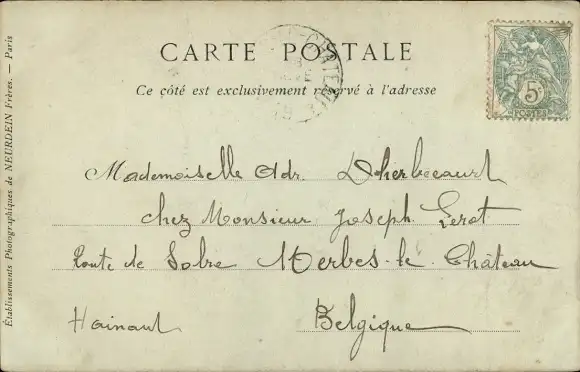 CARTE POSTALE
Ce côté est exclusivement réservé à l'adresse
5c
POSTES
Mademoiselle Adr. Dherbecourt
chez Monsieur Joseph Lerot
Route de Solre Merbes-le-Château
Hainaut Belgique
Établissements Photographiques de NEURDEIN Frères. — Paris